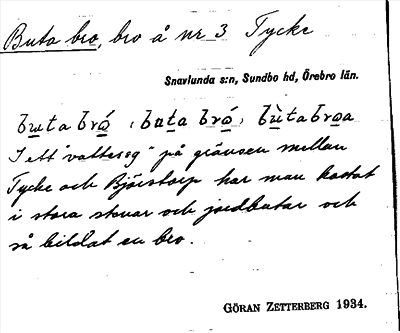 Buta bro, bro å nr 3 Tycke
Snavlunda s:n, Sundbo hd, Örebro län.
buta bró, buta bró, bùtabroa
I ett "vatteseg" på gränsen mellan
Tycke och Björstorp har man kastat
i stora stenar och jordbutar och
så bildat en bro.
GÖRAN ZETTERBERG 1934.